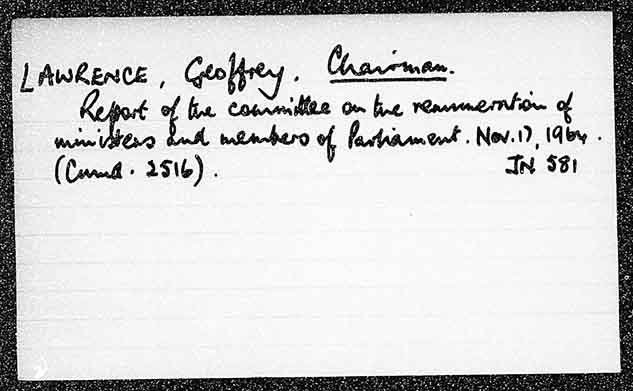 LAWRENCE, Geoffrey. Chairman.
Report of the committee on the remuneration of
ministers and members of Parliament. Nov. 17, 1964.
(Cmnd. 2516).
JN 581